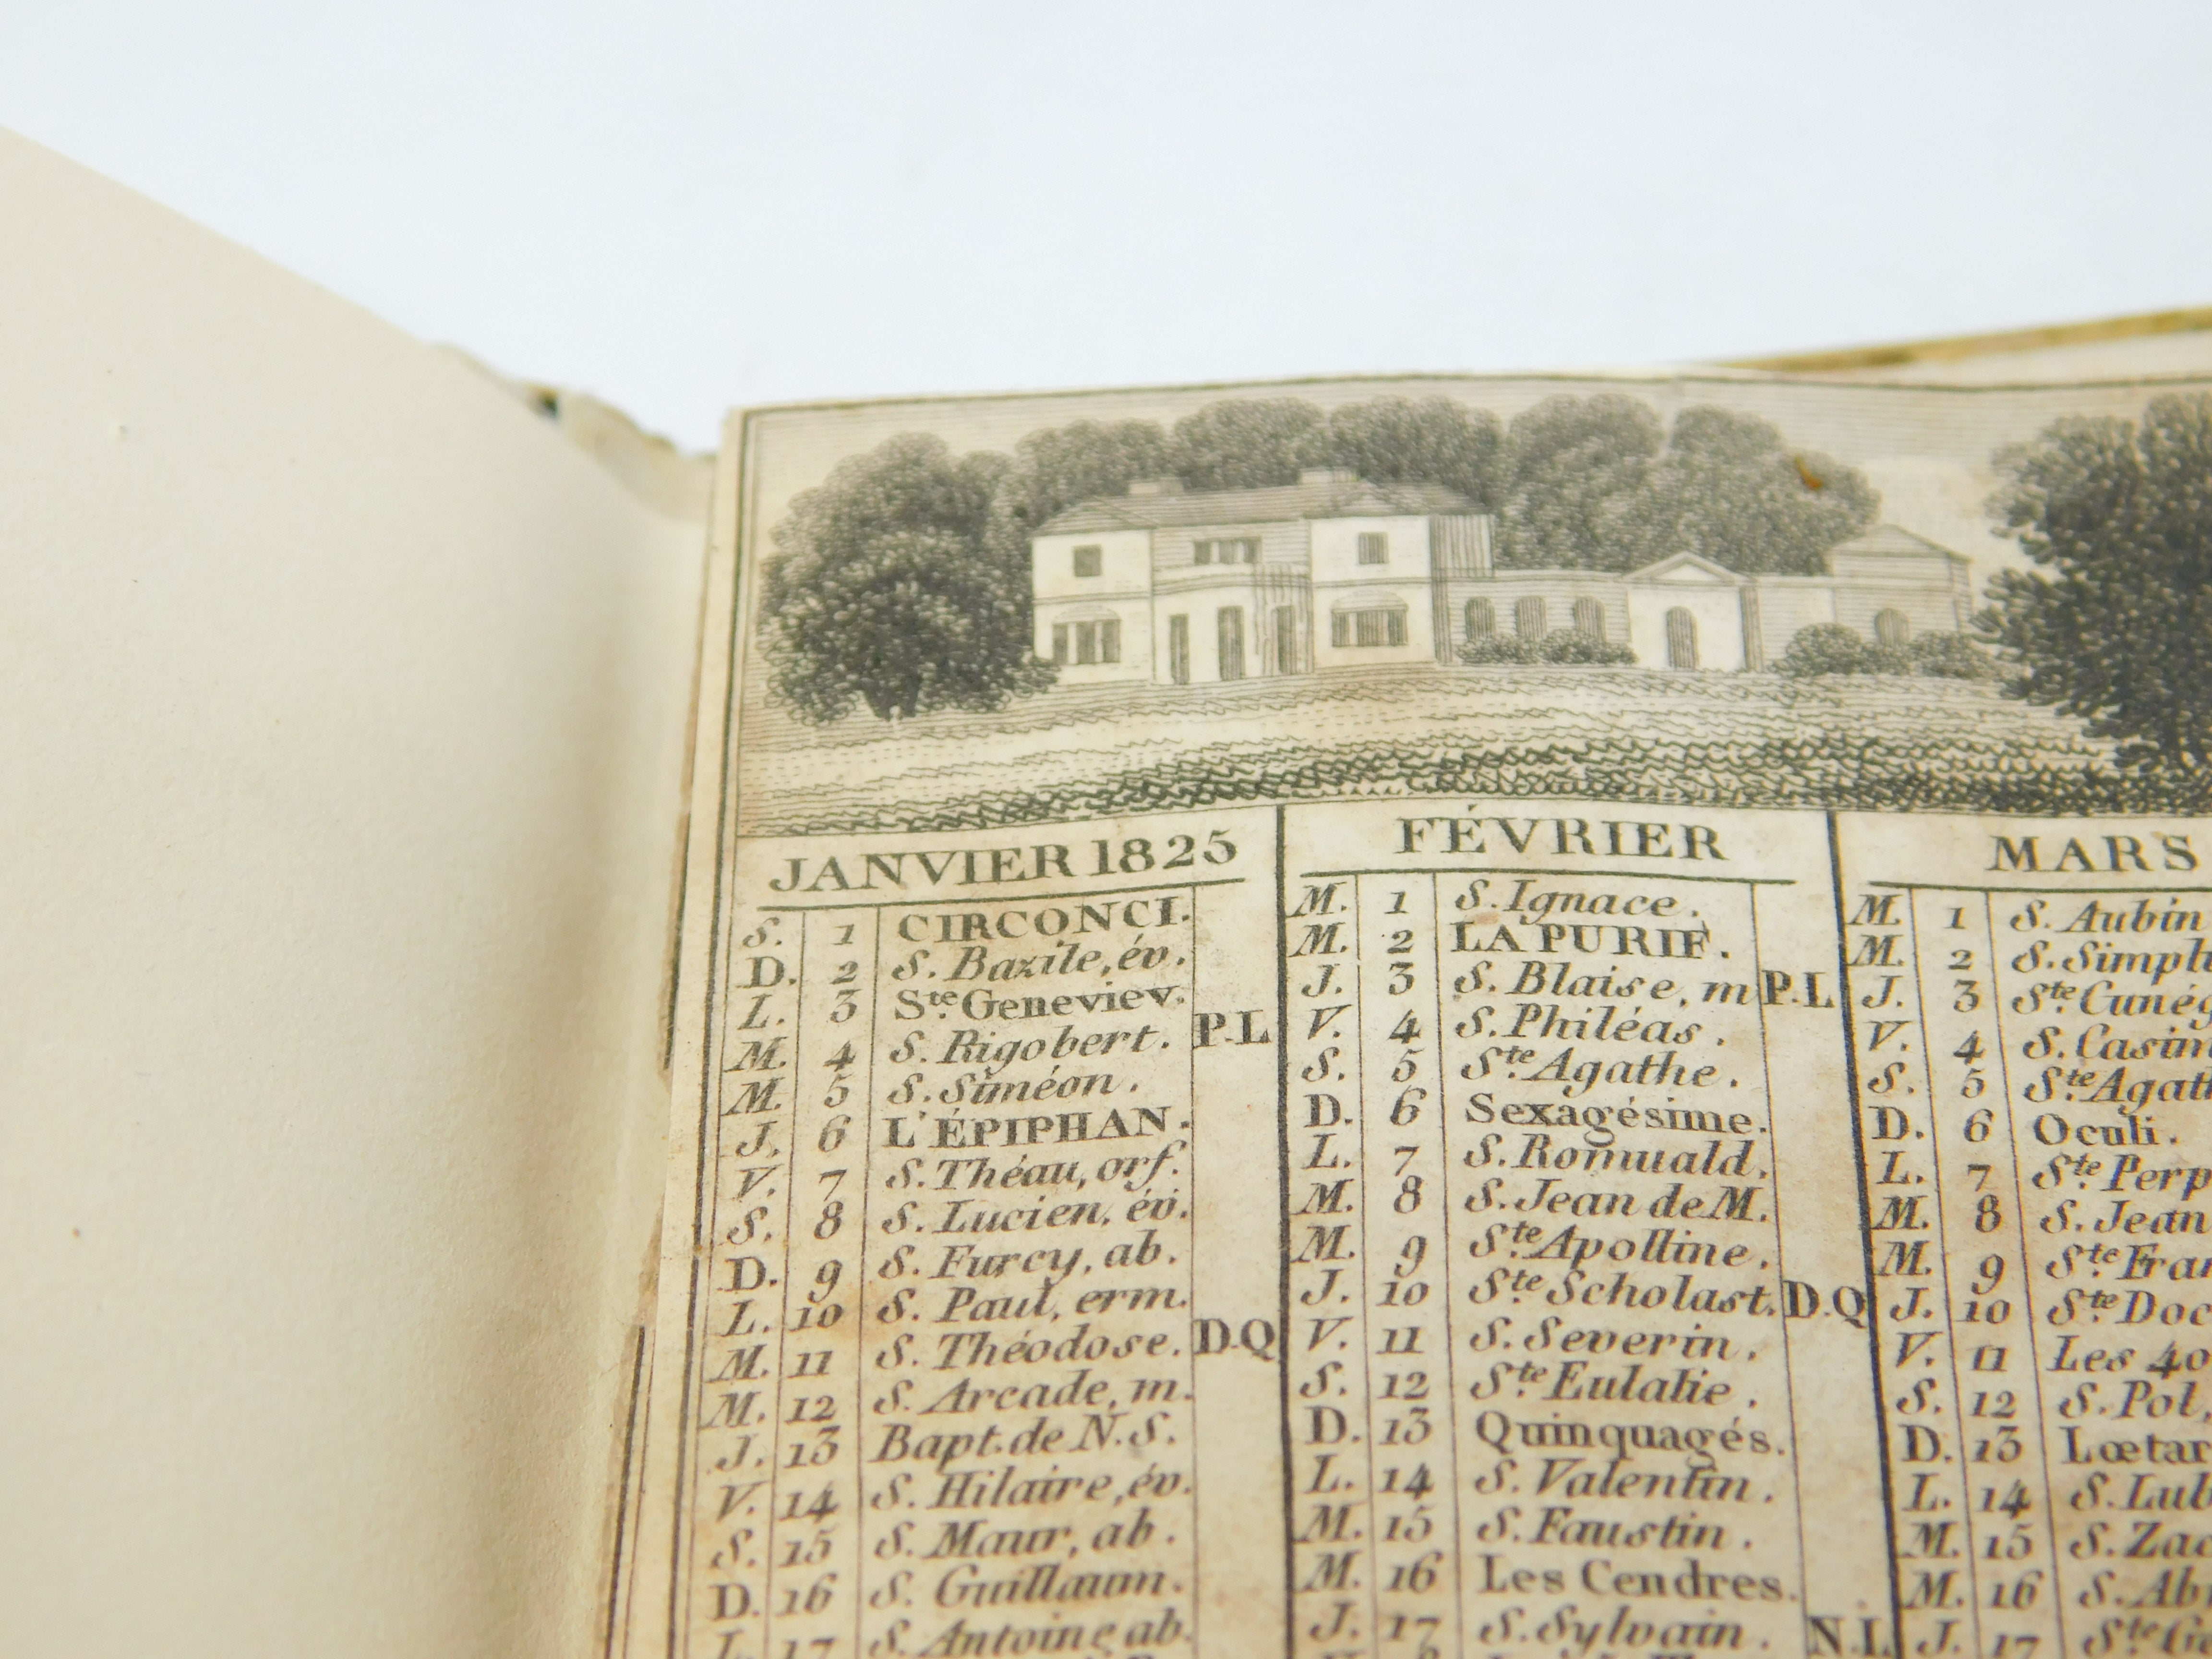 JANVIER 1825
S. 1 CIRCONCI.
D. 2 S. Bazile, év.
L. 3 Ste. Geneviev.
M. 4 S. Rigobert. P.L
M. 5 S. Siméon.
J. 6 L'ÉPIPHAN.
V. 7 S. Théau, orf.
S. 8 S. Lucien, év.
D. 9 S. Furcy, ab.
L. 10 S. Paul, erm.
M. 11 S. Théodose. D.Q
M. 12 S. Arcade, m.
J. 13 Bapt. de N.S.
V. 14 S. Hilaire, év.
S. 15 S. Maur, ab.
D. 16 S. Guillaum.
L. 17 S. Antoine ab.
FÉVRIER
M. 1 S. Ignace.
M. 2 LA PURIF.
J. 3 S. Blaise, m P.L
V. 4 S. Philéas.
S. 5 Ste. Agathe.
D. 6 Sexagésime.
L. 7 S. Romuald.
M. 8 S. Jean de M.
M. 9 Ste. Apolline.
J. 10 Ste. Scholast. D.Q
V. 11 S. Severin.
S. 12 Ste. Eulalie.
D. 13 Quinquagés.
L. 14 S. Valentin.
M. 15 S. Faustin.
M. 16 Les Cendres.
J. 17 S. Sylvain. N.L
MARS
M. 1 S. Aubin
M. 2 S. Simpli
J. 3 Ste. Cunég
V. 4 S. Casim
S. 5 Ste. Agath
D. 6 Oculi.
L. 7 Ste. Perp
M. 8 S. Jean
M. 9 Ste. Fran
J. 10 Ste. Doc
V. 11 Les 40
S. 12 S. Pol,
D. 13 Lœtar
L. 14 S. Lub
M. 15 S. Zac
M. 16 S. Ab
J. 17 Ste. G